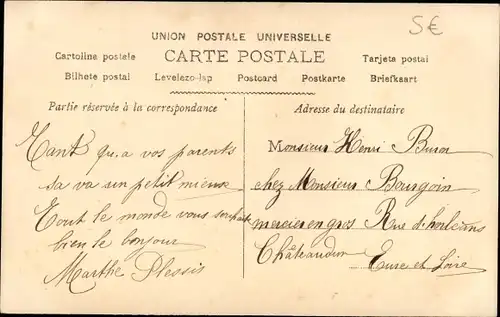 5€
UNION POSTALE UNIVERSELLE
CARTE POSTALE
Cartolina postale
Tarjeta postal
Bilhete postal Levelezo-lap Postcard Postkarte Briefkaart
Partie réservée à la correspondance
Tant qu,a vos parents
sa va un petit mieux
Tout le monde vous souhaite
bien le bonjour
Marthe Plessis
Adresse du destinataire
Monsieur Henri Buron
chez Monsieur Bourgoin
mercier en gros Rue d'orléans
Châteaudun
Eure et Loire